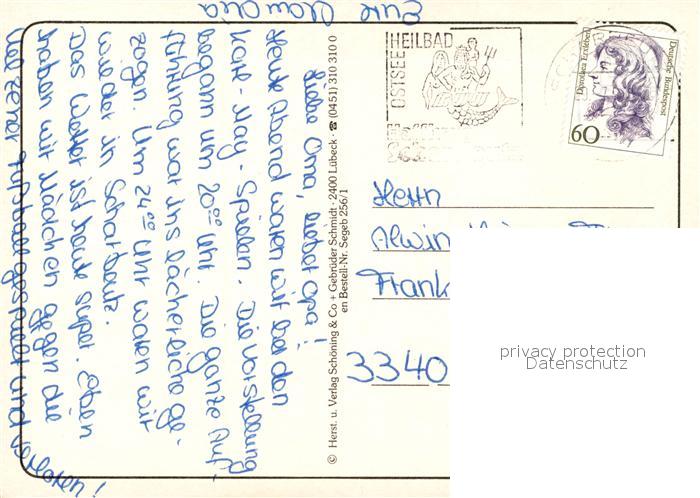 Liebe Oma, lieber Opa!
Heute Abend waren wir bei den
Karl-May-Spielen. Die Vorstellung
begann um 20⁰⁰ Uhr. Die ganze Auf-
führung war ins lächerliche ge-
zogen. Um 24⁰⁰ Uhr waren wir
wieder in Scharbeutz.
Das Wetter ist heute super. Eben
haben wir Mädchen gegen die
Uelzener Fußball gespielt und verloren!
Eure Claudia
© Herst. u. Verlag Schöning & Co + Gebrüder Schmidt · 2400 Lübeck · ☎ (0451) 310 310 0
en Bestell-Nr. Segeb 256/1
OSTSEE
HEILBAD
Dorothea Erxleben
Deutsche Bundespost
60
Herrn
Alwin
Frank
3340
privacy protection
Datenschutz